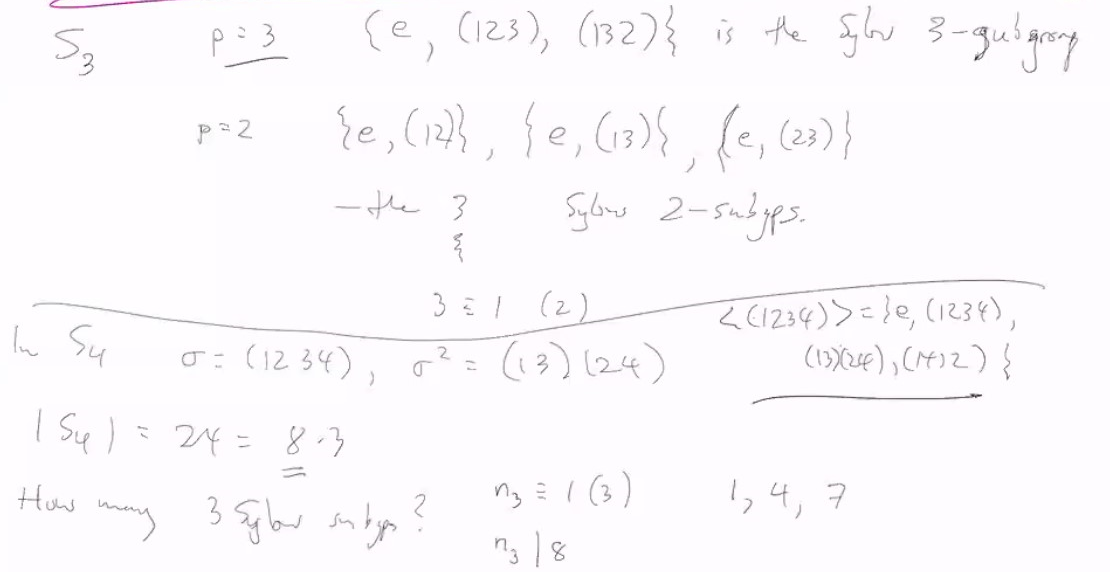 S₃ p = 3 {e, (123), (132)} is the Sylow 3-subgroup
p = 2 {e, (12)}, {e, (13)}, {e, (23)}
– the 3 Sylow 2-subgps.
3 ≡ 1 (2)
In S₄ σ = (1234), σ² = (13)(24)
<(1234)> = {e, (1234),
(13)(24), (1432)}
|S₄| = 24 = 8·3
How many 3 Sylow subgps? n₃ ≡ 1 (3) 1, 4, 7
n₃ | 8